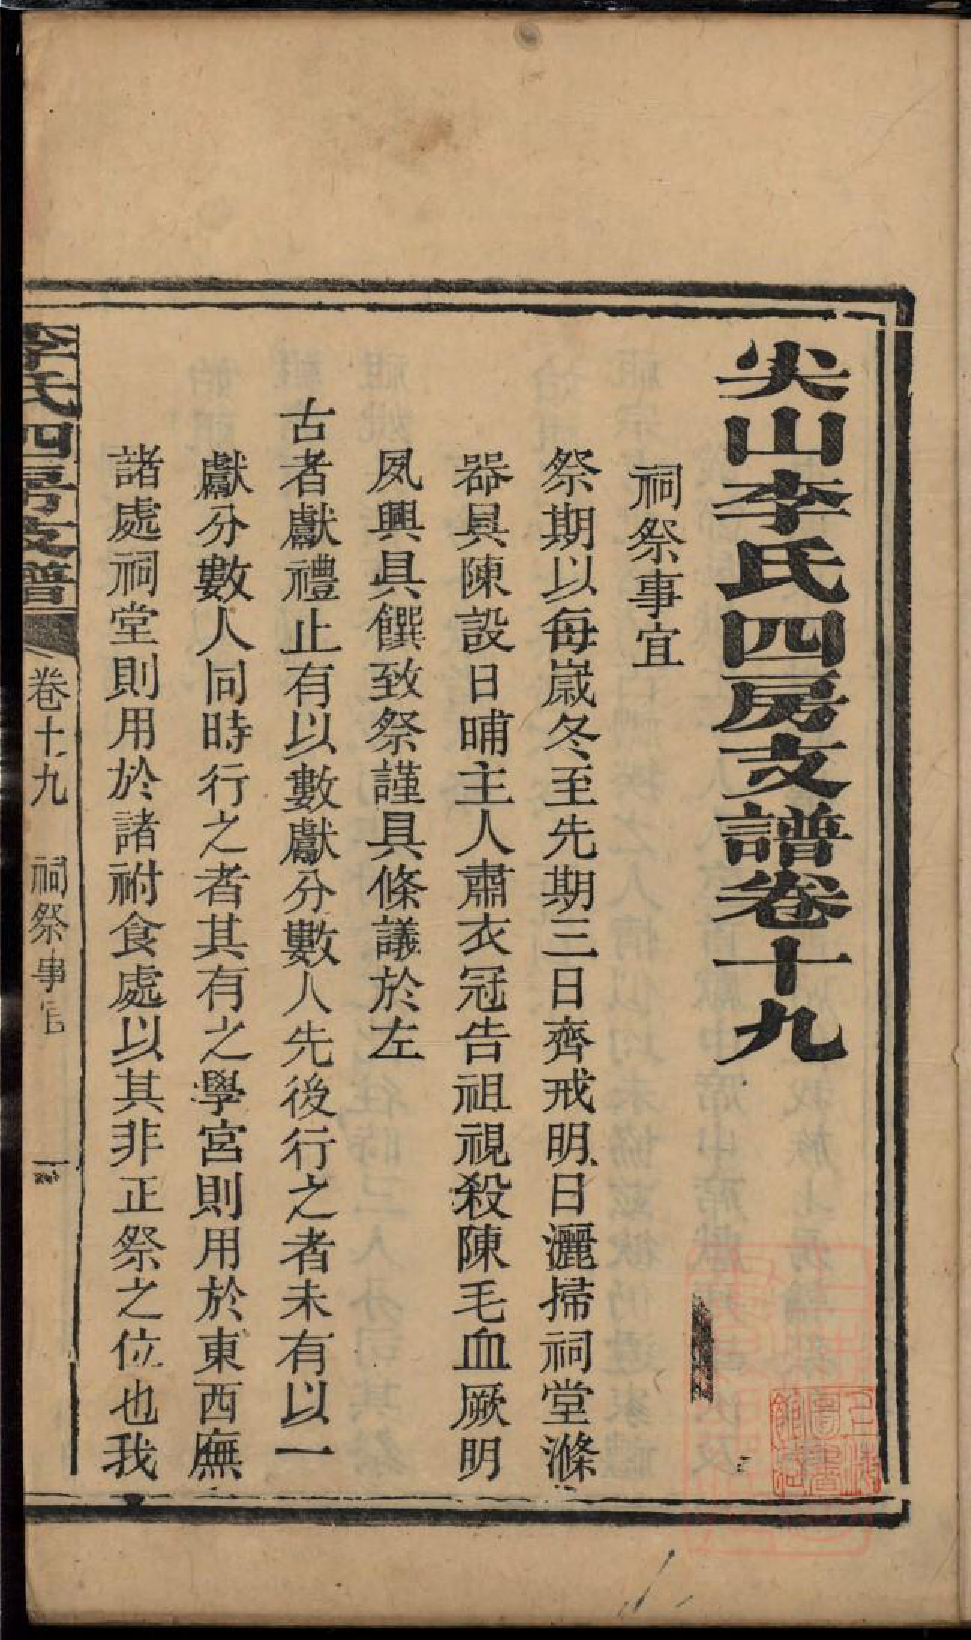 尖山李氏四房支譜卷十九
祠祭事宜
祭期以每嵗冬至先期三日齊戒明日灑掃祠堂滌
器具陳設日晡主人肅衣冠告祖視殺陳毛血厥明
夙興具饌致祭謹具條議於左
古者獻禮止有以數獻分數人先後行之者未有以一
獻分數人同時行之者其有之學宮則用於東西廡
諸處祠堂則用於諸祔食處以其非正祭之位也我
李氏四房支譜
卷十九
祠祭事宜
一